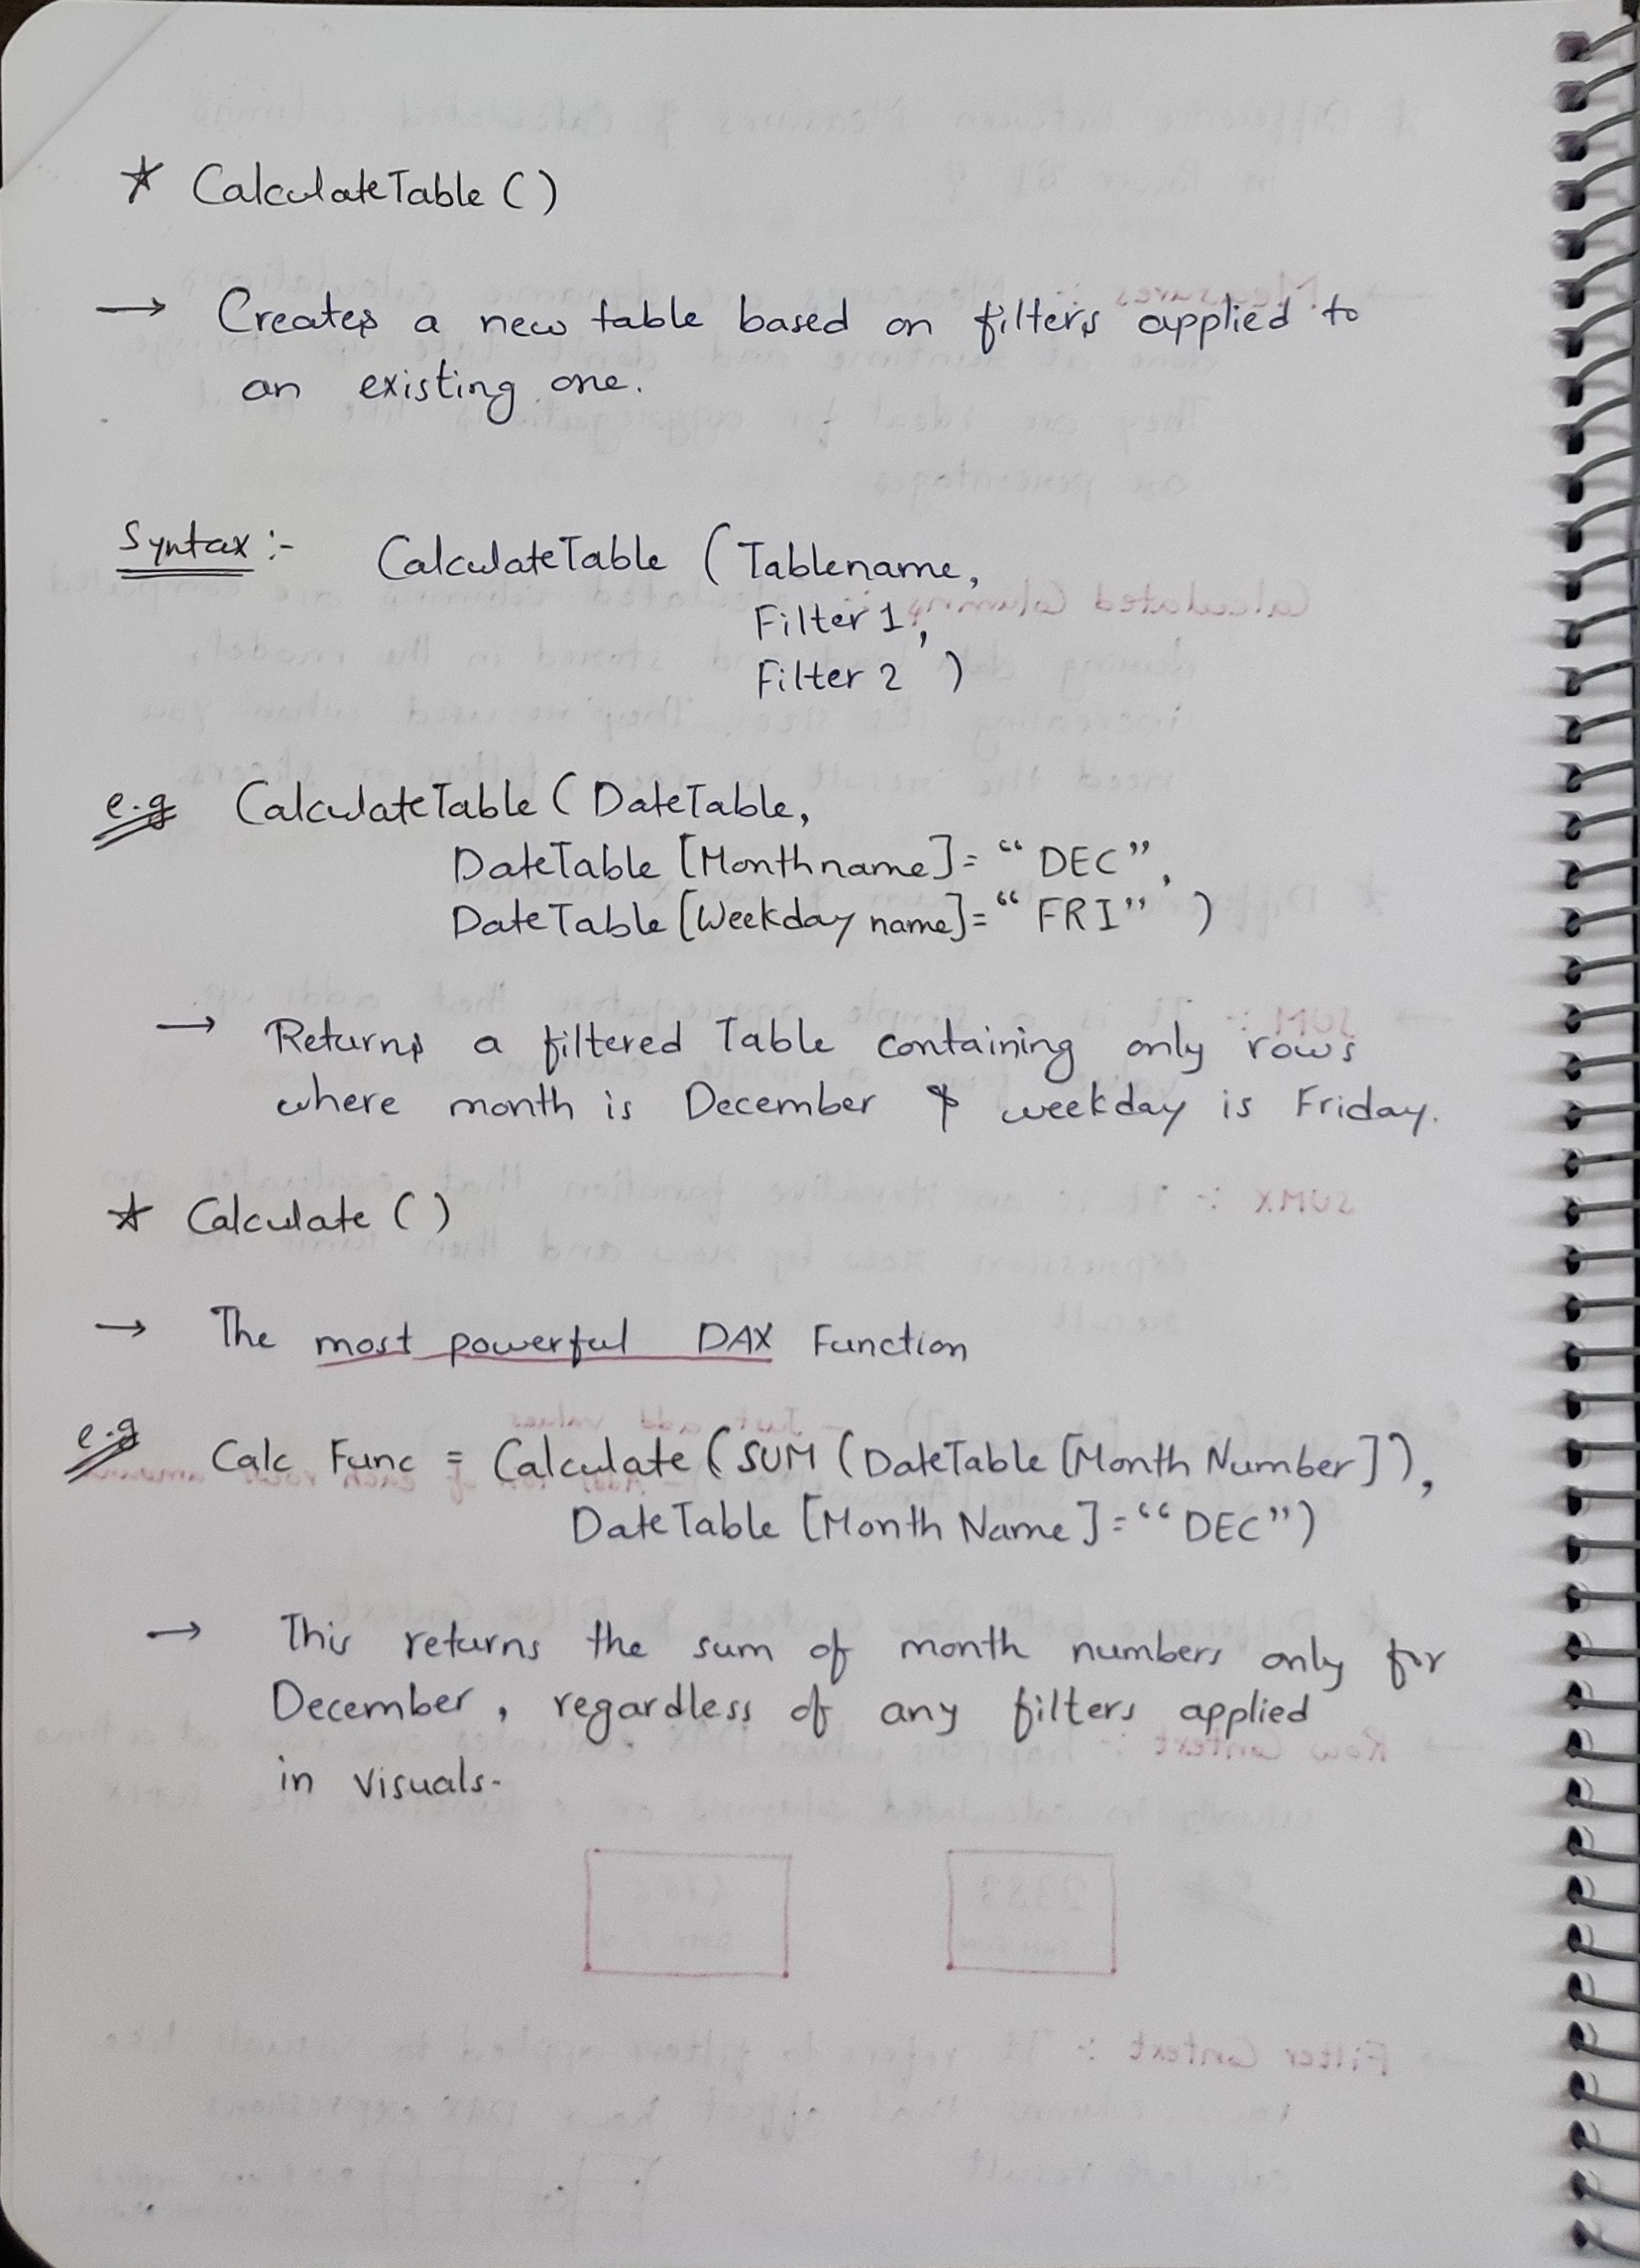 ☆ CalculateTable ()
→ Creates a new table based on filters applied to
an existing one.
Syntax :- CalculateTable ( Tablename,
Filter 1,
Filter 2 )
e.g CalculateTable ( DateTable,
DateTable [Monthname] = “ DEC ”,
DateTable [Weekday name] = “ FRI ” )
→ Returns a filtered Table containing only rows
where month is December & weekday is Friday.
☆ Calculate ( )
→ The most powerful DAX Function
e.g Calc Func = Calculate ( SUM ( DateTable [Month Number] ) ,
DateTable [Month Name] = “ DEC ” )
→ This returns the sum of month numbers only for
December , regardless of any filters applied
in visuals.